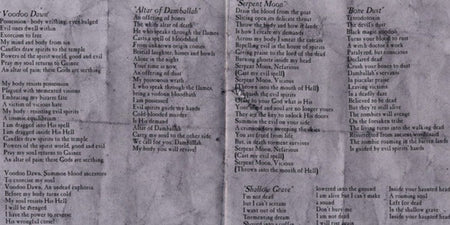 Voodoo Dawn
Possession - body writhing, eyes bulged
Evil ones dwell within
Exorcism to fate
My mind and body from sin
Candles draw spirits to the temple
Powers of the spirit world, good and evil
Pray my soul returns to Guinee
An altar of pain; these Gods are scathing
My body resists possession
Plagued with tormented visions
Embracing my bizarre fate
A victim of vicious hate
My body - resisting evil spirits
A zombie equilibrium
I am dragged into His spell
I am dragged inside His Hell
Candles draw spirits to the temple
Powers of the spirit world, good and evil
Pray my soul returns to Guinee
An altar of pain; these Gods are scathing
Voodoo Dawn, Summon blood ancestors
To exorcise my soul
Voodoo Dawn, An undead euphoria
Before my body turns cold
My soul resists His Hell
I will be
I have the power to reverse
His wrongful curse!
"Altar of Damballah"
An offering of bones
The white altar of death
He who speaks through the flames
Casting spell of bloodshed
From unknown origin comes
Bestial laughter, bones and howls
Alone in the night
Your time is now
An offering of dust
My possession wrath
I, who speak through the flames,
bring a voodoo bloodbath
I am possessed
Evil spirits guide my hands
Cold-blooded murder
is His demand
Altar of Damballah
Carry my soul to the other side
We call for you; Damballah
My body you will reveal
"Serpent Moon"
Drain the blood from the goat
Slicing open its delicate throat
Throw the knife and bow & lands
is how I create my demands
Across my body I smear the entrails
Repelling evil in the house of spirits
Giving praise to the lord of the dead
Burning ghosts inside my head
Serpent Moon, Nefarious
(Cast my evil spell)
Serpent Moon, Vicious
(Thrown into the mouth of Hell)
I squash the evil spirits
Obey to your God what is His
Your blind and soul are no longer yours
They are the key to unlock His doors
Summon the evil to your side
A crossroads
You are freed from life
But, in death torment survives
Serpent Moon, Nefarious
(Cast my evil spell)
Serpent Moon, Vicious
(Thrown into the mouth of Hell)
"Bone Dust"
Tetrodotoxin
is the devil's dust
Black magic voodoo
Turns your blood to rust
A witch doctor's work
Purely evil, but conscious
Declared dead
Crush your bones to dust
Damballah's servants
in macabre praise
Leaving victims
in a deadly daze
Believed to be dead
But they're still alive
The zombies will creep
On the forsaken tribe
The living turns into the walking dead
Whispers from ancients
The zombie roaming in the barren lands
Is guided by evil spirits' hands
"Shallow Grave"
I'm not dead
but I can't scream
I want out of this
Tormenting dream
lowered into the ground
I am alive but I can't make
a sound
Don't bury me
I will not die
Inside your haunted head
A rotting soul
Left for dead
in the shallow grave
Inside your haunted